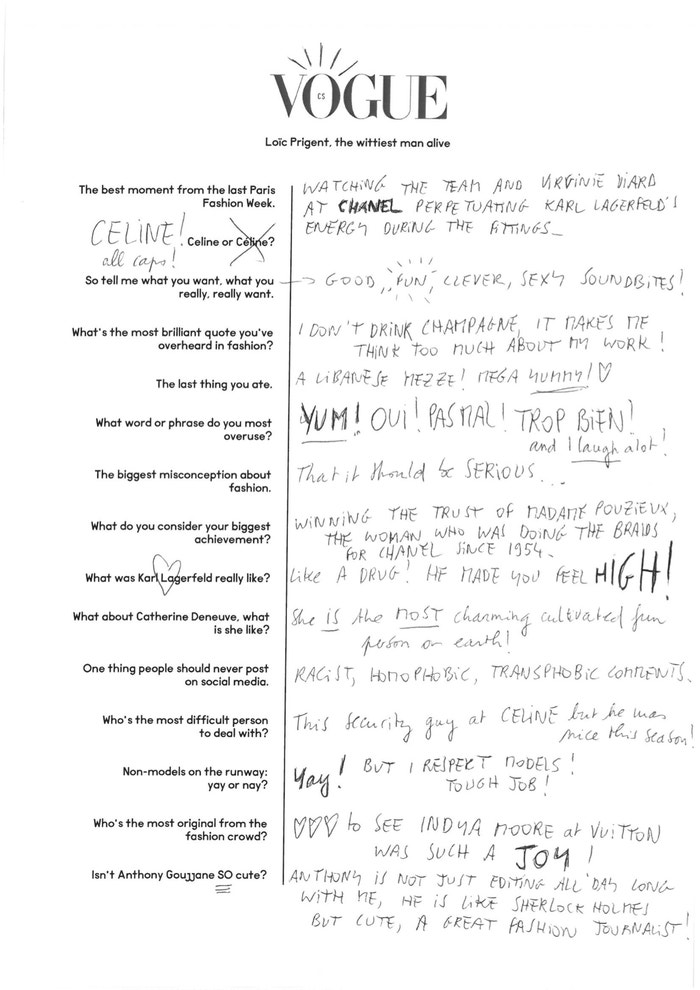 VOGUE
CS
Loïc Prigent, the wittiest man alive
The best moment from the last Paris
Fashion Week.
WATCHING THE TEAM AND VIRGINIE VIARD
AT CHANEL PERPETUATING KARL LAGERFELD'S
ENERGY DURING THE FITTINGS_
CELINE!
all caps!
Celine or Céline?
So tell me what you want, what you
really, really want.
→ GOOD, "FUN", CLEVER, SEXY SOUNDBITES!
What's the most brilliant quote you've
overheard in fashion?
I DON'T DRINK CHAMPAGNE, IT MAKES ME
THINK TOO MUCH ABOUT MY WORK!
The last thing you ate.
A LIBANESE MEZZE! MEGA YUMMY! ♡
What word or phrase do you most
overuse?
YUM! OUI! PAS MAL! TROP BIEN!
and I laugh a lot!
The biggest misconception about
fashion.
That it should be SERIOUS...
What do you consider your biggest
achievement?
WINNING THE TRUST OF MADAME POUZIEUX,
THE WOMAN WHO WAS DOING THE BRAIDS
FOR CHANEL SINCE 1954.
What was Karl Lagerfeld really like?
LIKE A DRUG! HE MADE YOU FEEL HIGH!
What about Catherine Deneuve, what
is she like?
She is the MOST charming cultivated fun
person on earth!
One thing people should never post
on social media.
RACIST, HOMOPHOBIC, TRANSPHOBIC COMMENTS.
Who's the most difficult person
to deal with?
This security guy at CELINE but he was
nice this season!
Non-models on the runway:
yay or nay?
Yay! BUT I RESPEKT MODELS!
TOUGH JOB!
Who's the most original from the
fashion crowd?
♡♡♡ to SEE INDYA MOORE at VUITTON
WAS SUCH A JOY!
Isn't Anthony Goujjane SO cute?
ANTHONY IS NOT JUST EDITING ALL DAY LONG
WITH ME, HE IS LIKE SHERLOCK HOLMES
BUT CUTE, A GREAT FASHION JOURNALIST!